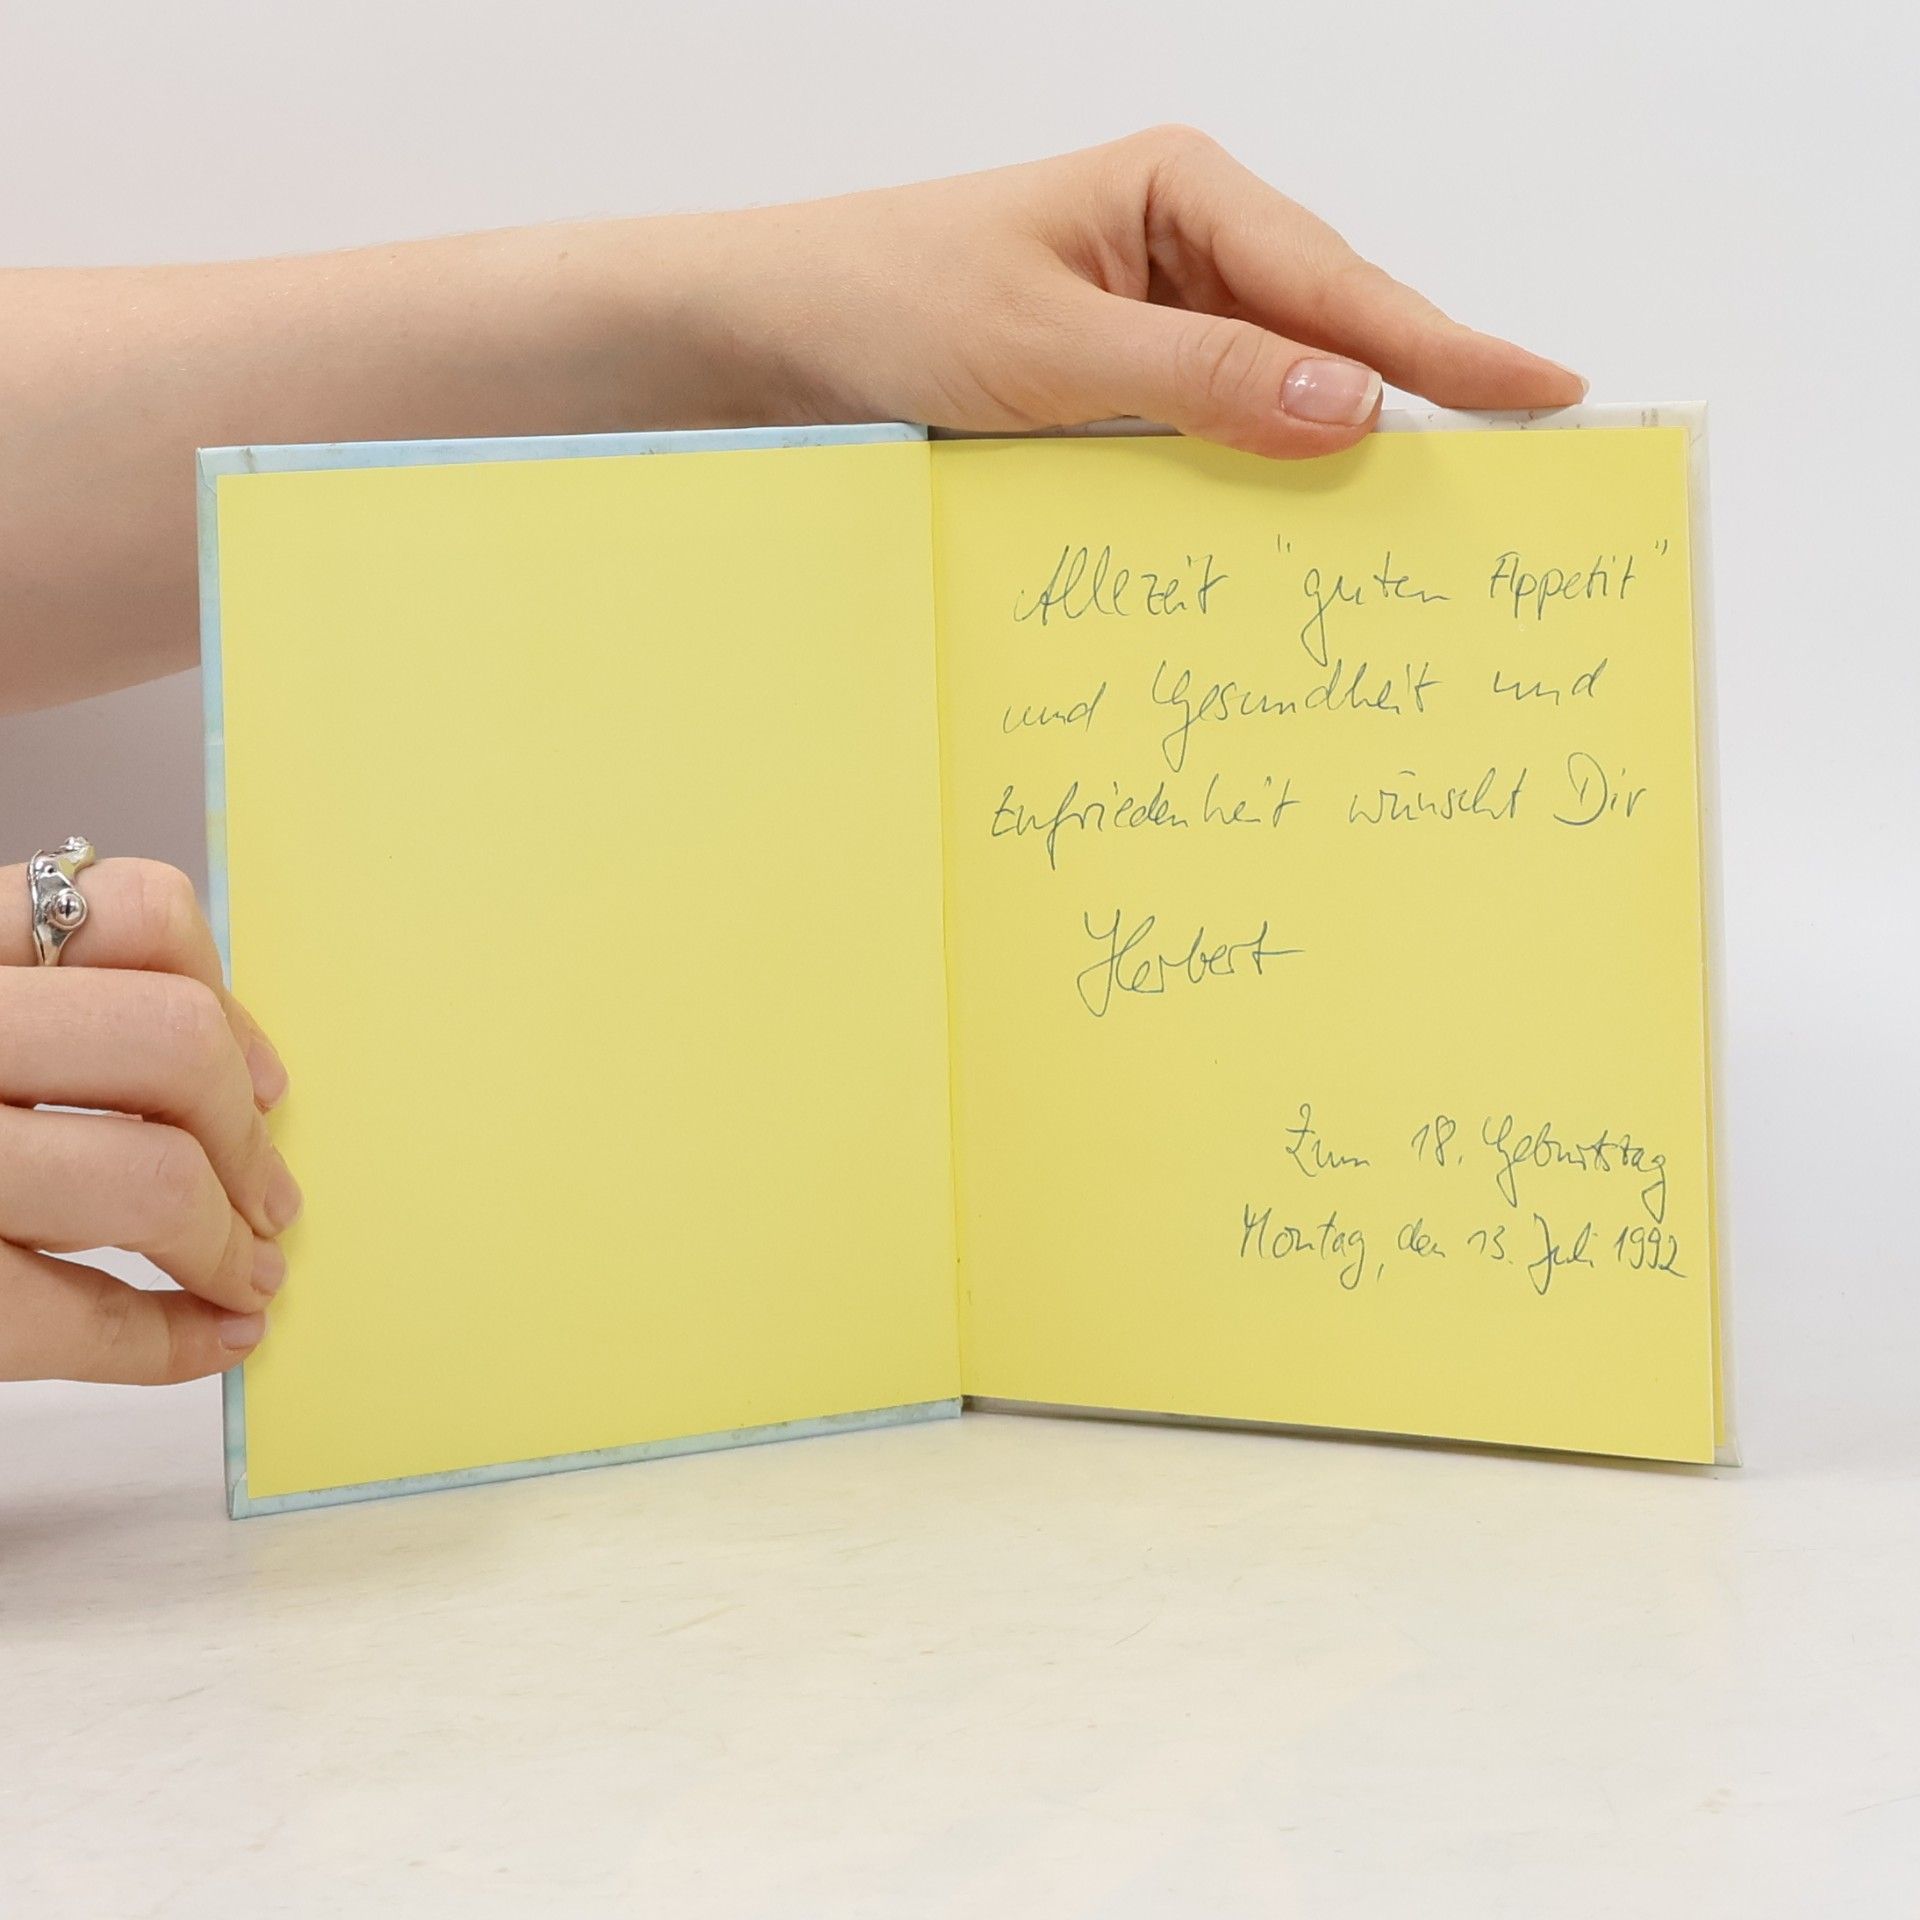 Allezeit "guten Appetit"
und Gesundheit und
Zufriedenheit wünscht Dir
Herbert
Zum 18. Geburtstag
Montag, den 13. Juli 1992